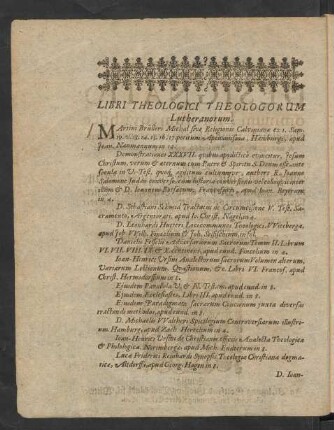 LIBRI THEOLOGICI THEOLOGORUM
Lutheranorum.
MArtini
Jean. Naumannum in 12.
Demonstrationes XXXVII. quibus apodictice evincitur, Jesum
Christum, verum & æternum cum Patre & Spiritu S. Deum esse
in U. Test. quoque cultumque, authore
Salomone
& D. Joannem Botsaccum, Francofurti, apud Joan. Beyerum
in 4.
D. Sebastiani Schmid Tractatus de Circumcisione V. Test. Sa-
cramento, Argentorati, apud Jo. Christ. Nagelin 4.
D. Leonhardi Hutteri Loci communes Theologici. Wittebergæ,
apud Job VVilh. Fincelium & Joh. Seelfischium in fol.
Danielis Feselii Adversariorum Sacrorum Tomus II. Librum
VI. VII. VIII. IX & X. continens, apud eund. Fincelium in 4.
Joan-Henrici Ursini Analectorum sacrorum Volumen alterum,
Variarum Lectionum, Quæstionum, &c. Libri VI. Francof. apud
Christ. Hermsdorffium in 8.
Ejusdem Parallela V. & N. Testam. apud eund. in 8.
Ejusdem Ecclesiastes, Libri III. apud eund. in 8.
Ejusdem Paradigmata sacrarum Concionum juxta diversas
tractandi methodos, apud eund. in 8.
D. Michaelis VValtheri Spicilegium Controversiarum illustrium
Hamburg. apud Zach. Hertelium in 4.
Joan-Henrici Ursini de Christianis officiis Analecta Theologica
& Philologica. Norimbergæ, apud Mich. Endterum in 8.
Lucæ Friderici Reinhardi Synopsis Theologiæ Christianæ dogma-
ticæ, Altdorffi, apud Georg. Hagen in 8.
D. Joan-